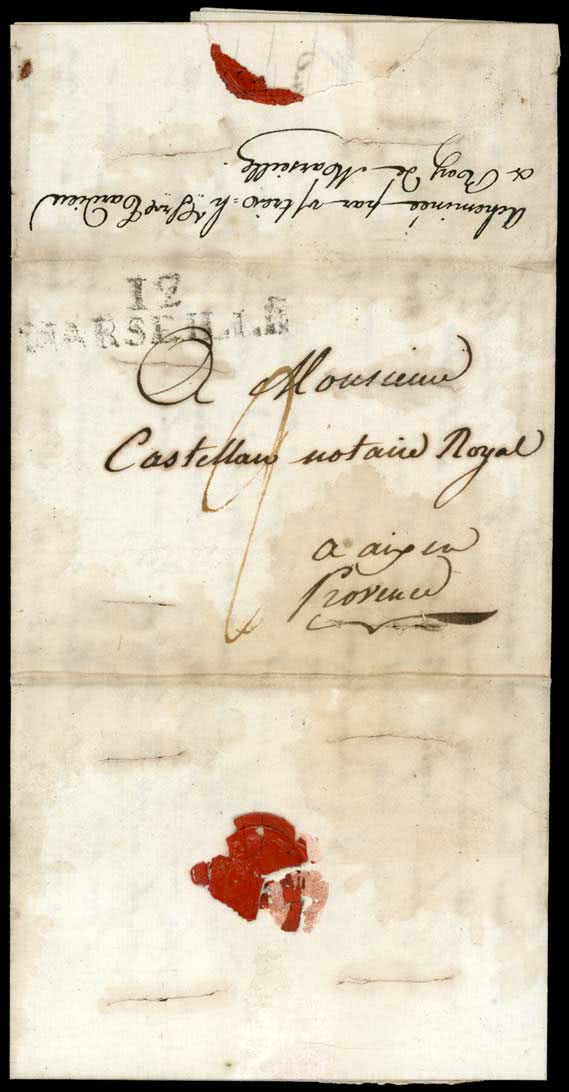 Acheminée par
a de Marseille.
12
MARSEILLE
A Monsieur
Castellan notaire Royal
a aix en
Provence